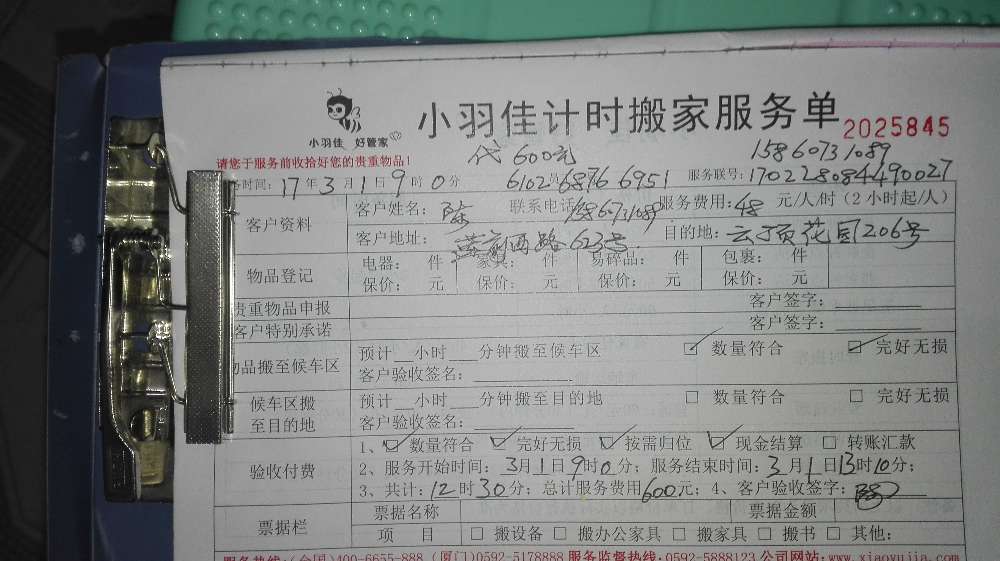 小羽佳计时搬家服务单 2025845
小羽佳 好管家
代 600元 15860731089
请您于服务前收拾好您的贵重物品!
务时间: 17年3月1日9时0分 6102员6876 6951 服务联号: 1702280844490027
客户资料 客户姓名: 陈 联系电话 15860731089 服务费用: 48 元/人/时(2小时起/人)
客户地址: 西路623号 目的地: 云顶花园206号
物品登记 电器: 件 家具: 件 易碎品: 件 包裹: 件
保价: 元 保价: 元 保价: 元 保价: 元
贵重物品申报 客户签字:
客户特别承诺 客户签字:
物品搬至候车区 预计__小时___分钟搬至候车区 ☑ 数量符合 ☑ 完好无损
客户验收签名:
候车区搬至目的地 预计__小时___分钟搬至目的地 □ 数量符合 □ 完好无损
客户验收签名:
验收付费 1、☑数量符合 ☑完好无损 ☑按需归位 ☑现金结算 □转账汇款
2、服务开始时间: 3月1日9时0分; 服务结束时间: 3月1日13时10分;
3、共计: 12时30分; 总计服务费用600元; 4、客户验收签字: 陈
票据栏 票据名称 票据金额
项 目 □ 搬设备 □ 搬办公家具 □ 搬家具 □ 搬书 □ 其他:
服务热线: (全国)400-6655-888 (厦门)0592-5178888 服务监督热线: 0592-5888123 公司网站: www.xiaoyujia.com